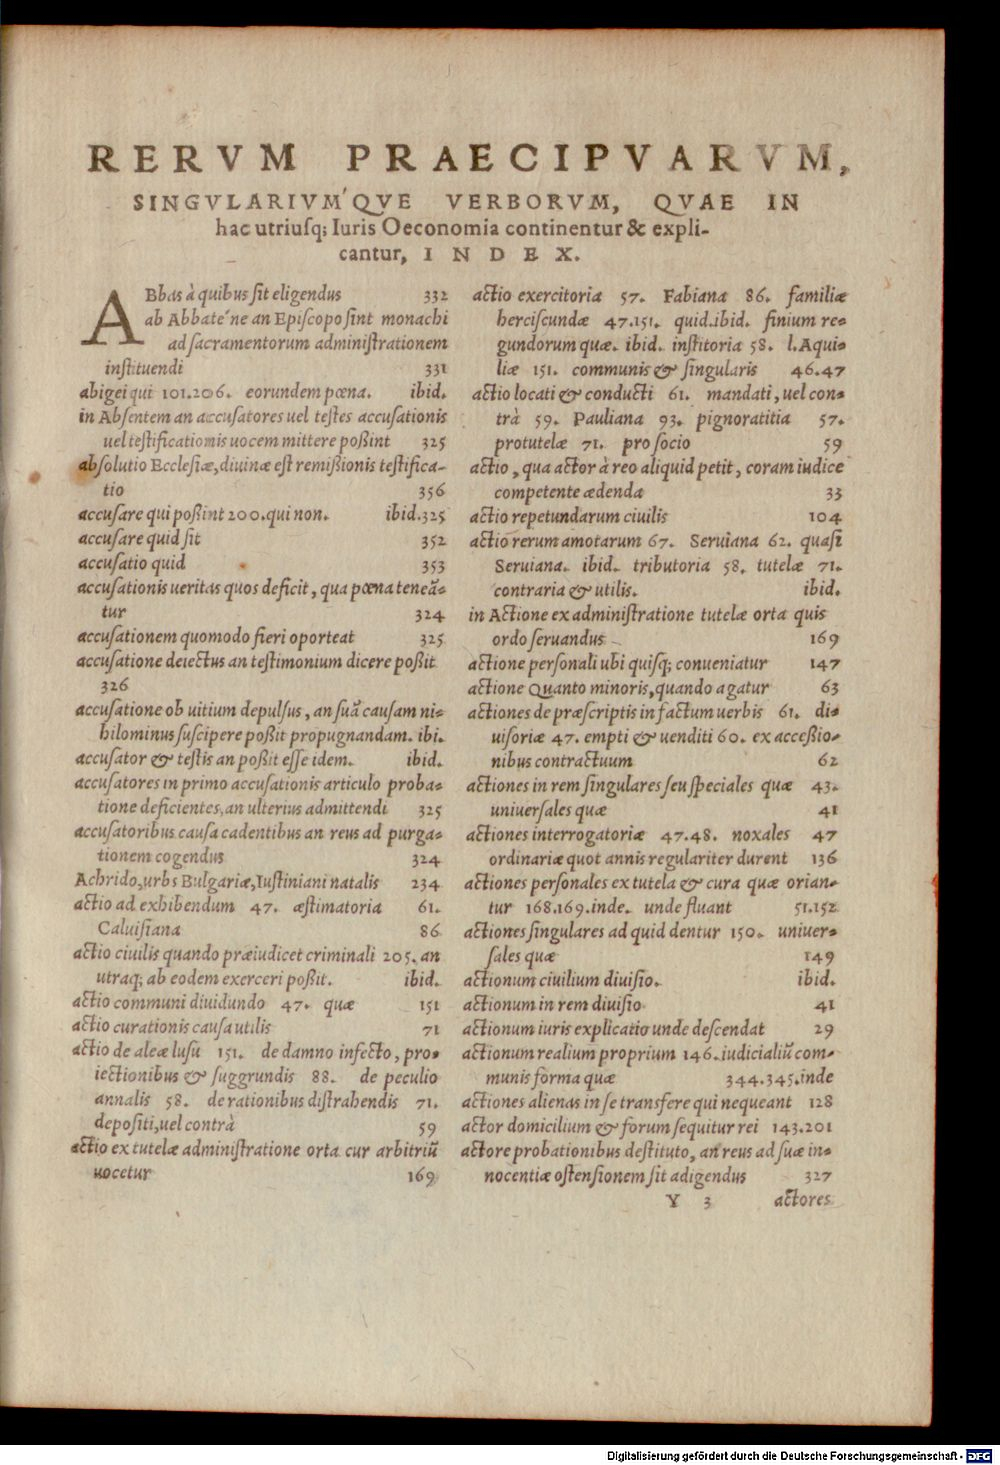 RERVM PRAECIPVARVM,
SINGVLARIVM'QVE VERBORVM, QVAE IN
hac utriusq; Iuris Oeconomia continentur & expli-
cantur, INDEX.
ABbas à quibus sit eligendus 332
ab Abbate'ne an Episcopo sint monachi
ad sacramentorum administrationem
instituendi 331
abigei qui 101.206. eorundem pœna. ibid.
in Absentem an accusatores uel testes accusationis
uel testificationis uocem mittere poßint 325
absolutio Ecclesiæ, diuinæ est remißionis testifica-
tio 356
accusare qui poßint 200. qui non. ibid.325
accusare quid sit 352
accusatio quid 353
accusationis ueritas quos deficit, qua pœna teneā-
tur 324
accusationem quomodo fieri oporteat 325
accusatione deiectus an testimonium dicere poßit
326
accusatione ob uitium depulsus, an suā causam ni-
hilominus suscipere poßit propugnandam. ibi.
accusator & testis an poßit esse idem. ibid.
accusatores in primo accusationis articulo proba-
tione deficientes, an ulterius admittendi 325
accusatoribus causa cadentibus an reus ad purga-
tionem cogendus 324
Achrido, urbs Bulgariæ, Iustiniani natalis 234
actio ad exhibendum 47. æstimatoria 61.
Caluisiana 86
actio ciuilis quando præiudicet criminali 205. an
utraq; ab eodem exerceri poßit. ibid.
actio communi diuidundo 47. quæ 151
actio curationis causa utilis 71
actio de aleæ lusu 151. de damno infecto, pro-
iectionibus & suggrundis 88. de peculio
annalis 58. de rationibus distrahendis 71.
depositi, uel contrà 59
actio ex tutelæ administratione orta cur arbitriū
uocetur 169
actio exercitoria 57. Fabiana 86. familiæ
herciscundæ 47.151. quid.ibid. finium re-
gundorum quæ. ibid. institoria 58. l. Aqui-
liæ 151. communis & singularis 46.47
actio locati & conducti 61. mandati, uel con-
trà 59. Pauliana 93. pignoratitia 57.
protutelæ 71. pro socio 59
actio, qua actor à reo aliquid petit, coram iudice
competente ædenda 33
actio repetundarum ciuilis 104
actio rerum amotarum 67. Seruiana 62. quasi
Seruiana. ibid. tributoria 58. tutelæ 71.
contraria & utilis. ibid.
in Actione ex administratione tutelæ orta quis
ordo seruandus 169
actione personali ubi quisq; conueniatur 147
actione Quanto minoris, quando agatur 63
actiones de præscriptis in factum uerbis 61. di-
uisoriæ 47. empti & uenditi 60. ex acceßio-
nibus contractuum 62
actiones in rem singulares seu speciales quæ 43.
uniuersales quæ 41
actiones interrogatoriæ 47.48. noxales 47
ordinariæ quot annis regulariter durent 136
actiones personales ex tutela & cura quæ orian-
tur 168.169.inde. unde fluant 51.152
actiones singulares ad quid dentur 150. uniuer-
sales quæ 149
actionum ciuilium diuisio. ibid.
actionum in rem diuisio 41
actionum iuris explicatio unde descendat 29
actionum realium proprium 146. iudicialiū com-
munis forma quæ 344.345.inde
actiones alienas in se transfere qui nequeant 128
actor domicilium & forum sequitur rei 143.201
actore probationibus destituto, an reus ad suæ in-
nocentiæ ostensionem sit adigendus 327
Y 3 actores
Digitalisierung gefördert durch die Deutsche Forschungsgemeinschaft - DFG